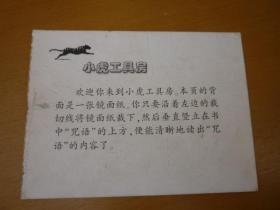 小虎工具房
欢迎你来到小虎工具房。本页的背
面是一张镜面纸。你只要沿着左边的裁
切线将镜面纸裁下，然后垂直竖立在书
中“咒语”的上方，便能清晰地读出“咒
语”的内容了。